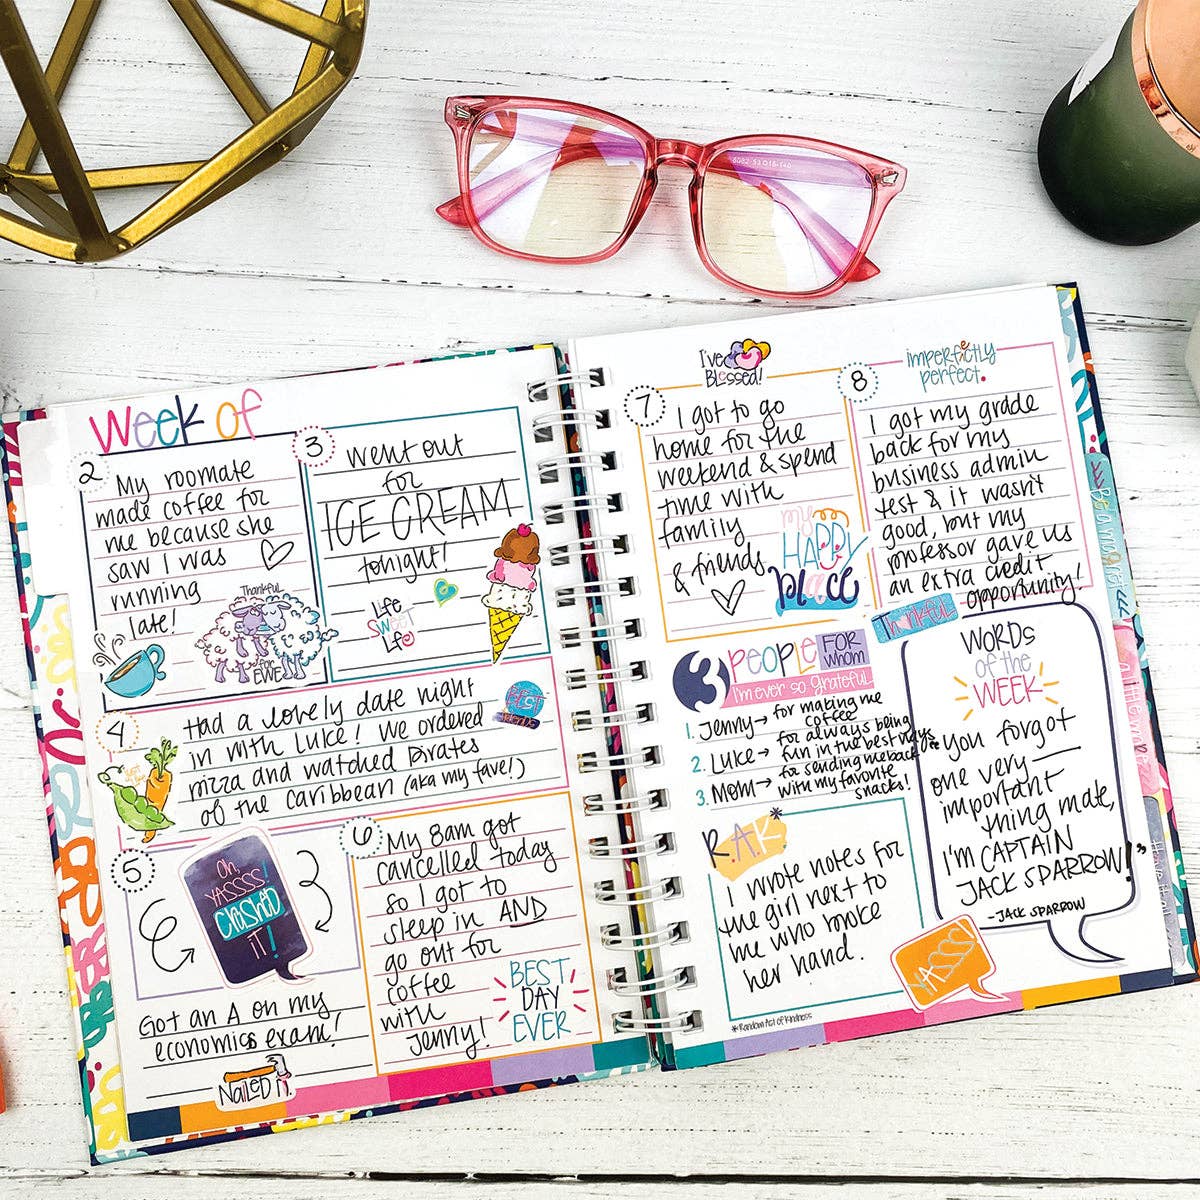 Week of
2
My roomate
made coffee for
me because she
saw I was
running
late!
Thankful
for
EWE
3
Went out
for
ICE CREAM
tonight!
Life
SWEET
Life!
4
Had a lovely date night
in with Luke! We ordered
pizza and watched Pirates
of the Caribbean (aka my fave!)
BEST
5
Oh,
YASSSS!
CRUSHED
IT!
Got an A on my
economics exam!
NAILED IT.
6
My 8am got
cancelled today
so I got to
sleep in AND
go out for
coffee
with
Jenny!
BEST
DAY
EVER
I've
BLessed!
7
I got to go
home for the
weekend & spend
time with
family
& friends.
my
HAPPY
place
8
imperfectly
perfect.
I got my grade
back for my
business admin
test & it wasn't
good, but my
professor gave us
an extra credit
opportunity!
Thankful
3 PEOPLE FOR
WHOM
I'm ever so grateful
1. Jenny → for making me
coffee
2. Luke → for always being
fun in the best ways
3. Mom → for sending me back
with my favorite
snacks!
R.A.K*
I wrote notes for
the girl next to
me who broke
her hand.
*Random Act of Kindness
WORDS
of the
WEEK
"You forgot
one very
important
thing mate,
I'm CAPTAIN
JACK SPARROW!"
- JACK SPARROW
YASSS!